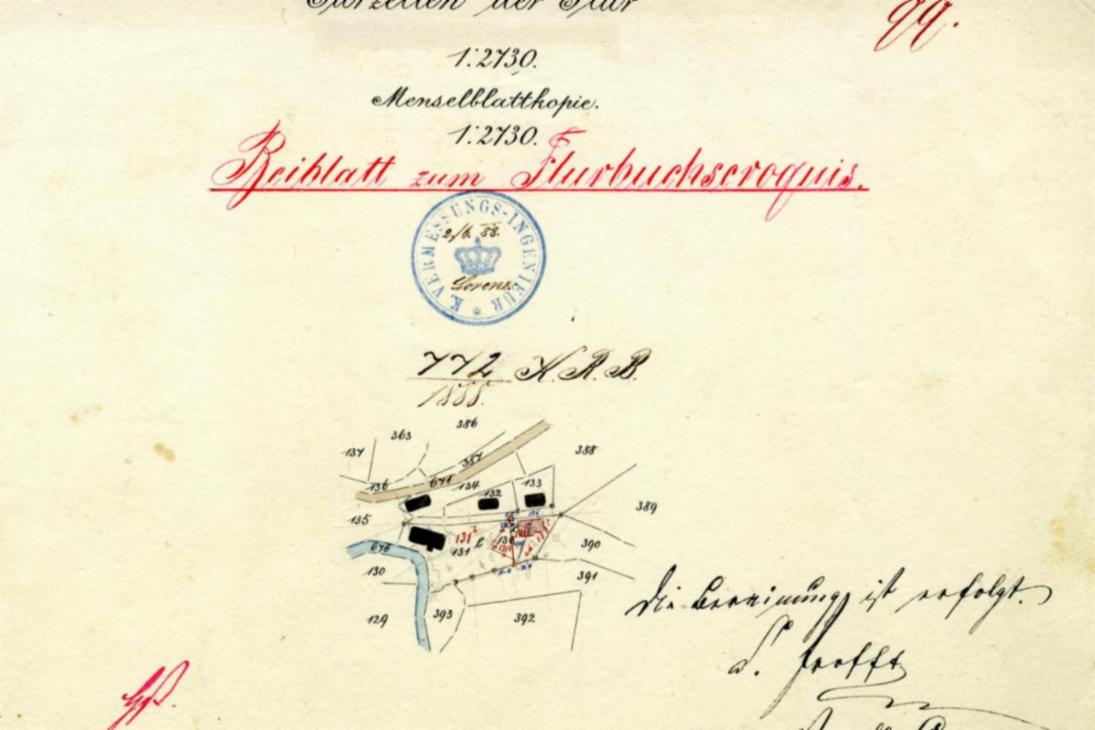 Parzellen der Flur
99.
1:2730.
Menselblattkopie.
1:2730.
Beiblatt zum Flurbuchscroquis.
K. VERMESSUNGS-INGENIEUR *
2/6. 88.
Lorenz.
772 K. R. B.
1888.
386
363
388
137
387
136
677
134
132
133
389
135
131
390
676
130
391
129
393
392
Die Bereinung ist erfolgt.